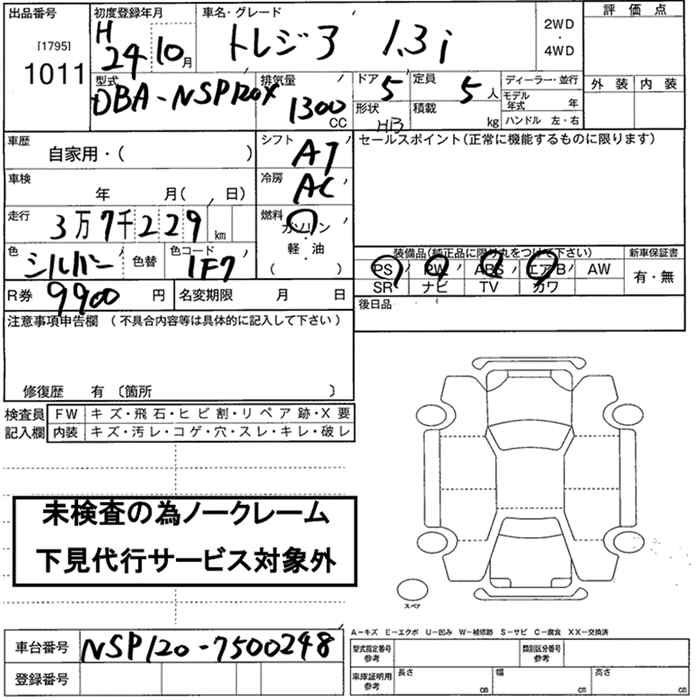 出品番号 初度登録年月 車名・グレード 2WD ・ 4WD 評価点
[1795] 1011 H 24 10月 トレジア 1.3i 外装 内装
型式 DBA-NSP120X 排気量 1300 CC ドア 5 定員 5 人 ディーラー・並行
形状 HB 積載 kg モデル年式 年
ハンドル 左・右
車歴 自家用・( ) シフト AT セールスポイント(正常に機能するものに限ります)
車検 年 月( 、 日) 冷房 AC
走行 3万7千229 km 燃料 ガソリン・軽・油 ( )
色 シルバー 色替 色コード 1F7 装備品(純正品に限り丸をつけて下さい) 新車保証書
PS PW ABS エアB AW 有・無
SR ナビ TV カワ
R券 9900 円 名変期限 月 日 後日品
注意事項申告欄 (不具合内容等は具体的に記入して下さい)
修復歴 有 〔箇所 〕
検査員 FW キズ・飛石・ヒビ割・リペア跡・X要
記入欄 内装 キズ・汚レ・コゲ・穴・スレ・キレ・破レ
未検査の為ノークレーム
下見代行サービス対象外
スペア
A-キズ E-エクボ U-凹み W-補修跡 S-サビ C-腐食 XX-交換済
車台番号 NSP120-7500248 型式指定番号 参考 類別区分番号 参考
登録番号 車庫証明用 参考 長さ cm 幅 cm 高さ cm